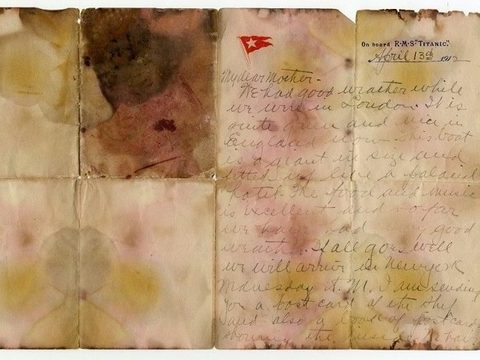 On board R.M.S "TITANIC."
April 13th 1912
My dear Mother -
We had good weather while
we were in London. It is
quite green and nice in
England now. This boat
is a giant in size and
fitted up like a palacial
hotel. The food and music
is excellent and so far
we have had very good
weather. If all goes well
we will arrive in New York
Wednesday A.M. I am sending
you a post card of the ship
and also a book of post cards
showing the inside